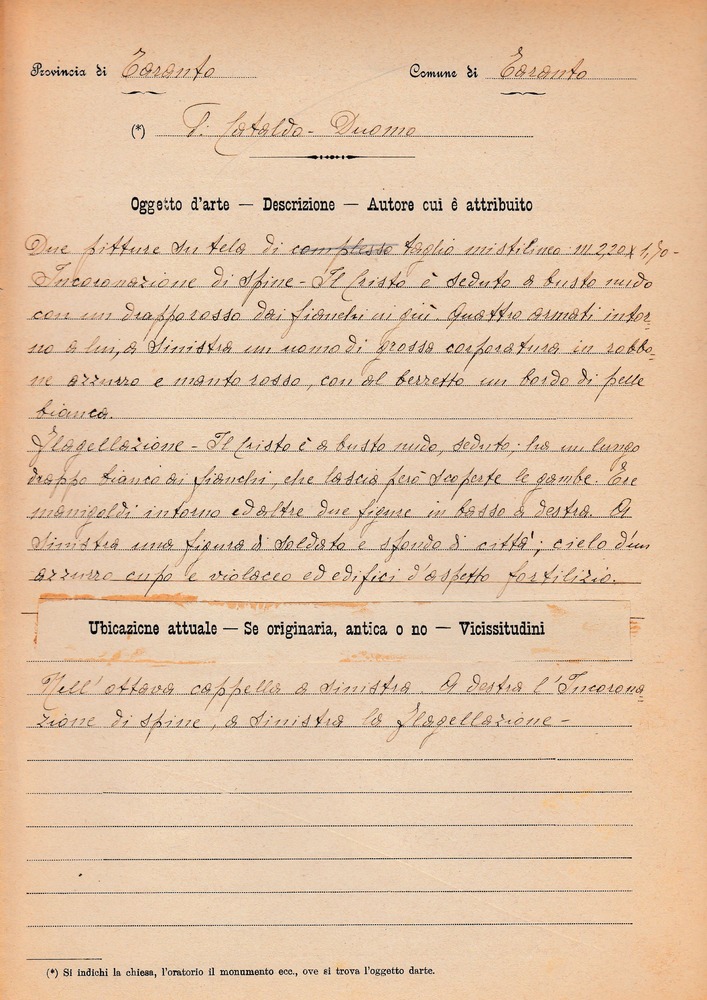 Provincia di Taranto Comune di Taranto
(*) S. Cataldo - Duomo
Oggetto d'arte — Descrizione — Autore cui è attribuito
Due pitture su tela di complesso taglio mistilineo m 2,20 x 1,70 -
Incoronazione di spine - Il Cristo è seduto a busto nudo
con un drappo rosso dai fianchi in giù. Quattro armati intor=
no a lui, a sinistra un uomo di grossa corporatura in robbo=
ne azzurro e manto rosso, con al berretto un bordo di pelle
bianca.
Flagellazione - Il Cristo è a busto nudo, seduto; ha un lungo
drappo bianco ai fianchi, che lascia però scoperte le gambe. Tre
manigoldi intorno ed altre due figure in basso a destra. A
sinistra una figura di soldato e sfondo di città; cielo d'un
azzurro cupo e violaceo ed edifici d'aspetto fortilizio.
Ubicazione attuale — Se originaria, antica o no — Vicissitudini
Nell'ottava cappella a sinistra. A destra l'Incorona=
zione di spine, a sinistra la Flagellazione -
(*) Si indichi la chiesa, l'oratorio il monumento ecc., ove si trova l'oggetto darte.